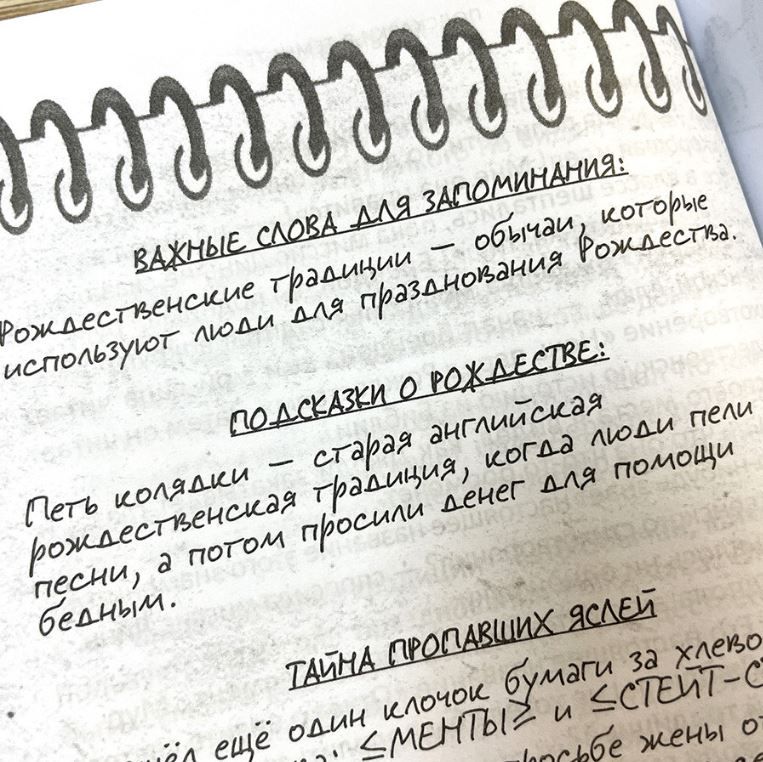 ВАЖНЫЕ СЛОВА ДЛЯ ЗАПОМИНАНИЯ:
Рождественские традиции — обычаи, которые
используют люди для празднования Рождества.
ПОДСКАЗКИ О РОЖДЕСТВЕ:
Петь колядки — старая английская
рождественская традиция, когда люди пели
песни, а потом просили денег для помощи
бедным.
ТАЙНА ПРОПАВШИХ ЯСЛЕЙ
ещё один клочок бумаги за хлево
≤МЕНТЫ≥ и ≤СТЕЙТ-С
жены